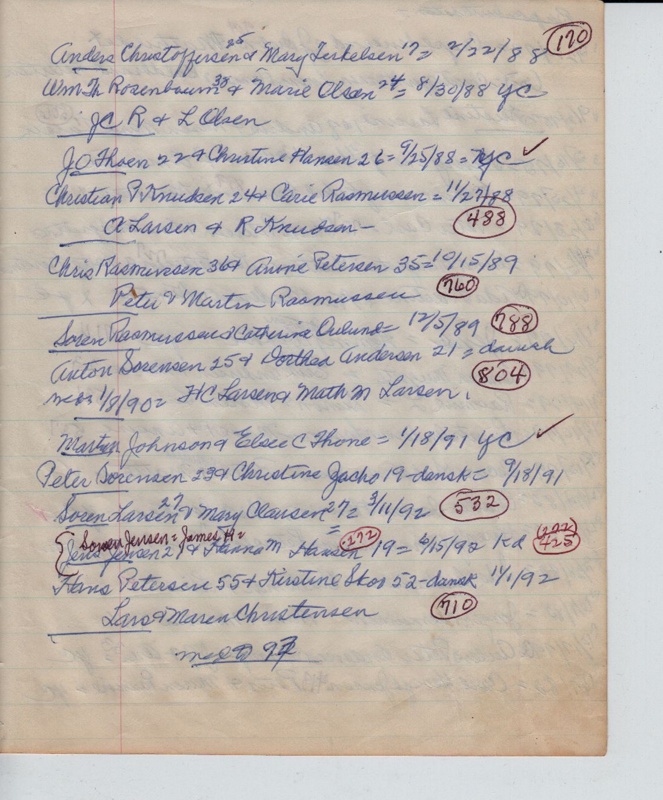 170
Anders Christoffersen 25 & Mary Terkelsen 17 = 2/22/88
Wm Th Rosenbaum 38 & Marie Olsen 24 = 8/30/88 YC
JC R & L Olsen
JO Thoen 22 & Christine Hansen 26 = 9/25/88 = YC ✓
Christian P Knudsen 24 & Carie Rasmussen = 11/27/88
A Larsen & R Knudson - 488
Chris Rasmussen 36 & Annie Petersen 35 = 10/15/89
Peter & Martin Rasmussen 760
Soren Rasmussen & Catherine = 12/5/89 788
Anton Sorensen 25 & Dorthea Andersen 21 = danish
1/8/90 = HC Larsen & Math M Larsen. 804
Martin Johnson & Elsie C Thone = 1/18/91 YC ✓
Peter Sorensen 29 & Christine Jacho 19 - dansk = 9/18/91
Soren Larsen 27 & Mary Clausen 27 = 3/11/92 532
Soren Jensen = James H =
Jens Jensen 27 & Hanna M Hansen 272 19 = 6/15/92 Kd 292 425
Hans Petersen 55 & Kirstine Skov 52 - dansk 11/1/92
Lars & Maren Christensen 710